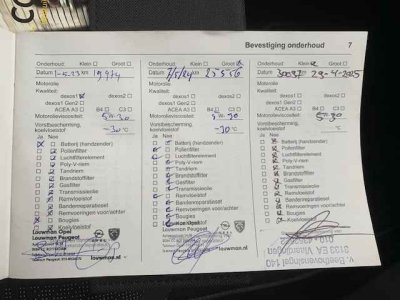 Bevestiging onderhoud 7
Onderhoud: Klein Groot
Datum 1-5-23 km 19974
Motorolie
Kwaliteit:
dexos1
dexos1 Gen2
dexos2
ACEA A3 B4 C3
Motorolieviscositeit: 5W-30
Vorstbescherming,
koelvloeistof -30°C
Ja Nee
Batterij (handzender)
Pollenfilter
Luchtfilterelement
Poly-V-riem
Tandriem
Brandstoffilter
Gasfilter
Transmissieolie
Remvloeistof
Bandenreparatieset
Remvoeringen voor/achter
Bougies
Koelvloeistof
Louwman Opel
Louwman Peugeot
Onderhoud: Klein Groot
Datum 7/5/24 km 25556
Motorolie
Kwaliteit:
dexos1
dexos1 Gen2
dexos2
ACEA A3 B4 C3
Motorolieviscositeit: 5W-30
Vorstbescherming,
koelvloeistof -30°C
Ja Nee
Batterij (handzender)
Pollenfilter
Luchtfilterelement
Poly-V-riem
Tandriem
Brandstoffilter
Gasfilter
Transmissieolie
Remvloeistof
Bandenreparatieset
Remvoeringen voor/achter
Bougies
Koelvloeistof
Louwman Opel
Louwman Peugeot
louwman.nl
Onderhoud: Klein Groot
Datum km 29-4-2025
Motorolie
Kwaliteit:
dexos1
dexos1 Gen2
dexos2
ACEA A3 B4 C3
Motorolieviscositeit: 5W30
Vorstbescherming,
koelvloeistof °C
Ja Nee
Batterij (handzender)
Pollenfilter
Luchtfilterelement
Poly-V-riem
Tandriem
Brandstoffilter
Gasfilter
Transmissieolie
Remvloeistof
Bandenreparatieset
Remvoeringen voor/achter
Bougies
Koelvloeistof
v. Beethovensingel 140
3133 EA Vlaardingen